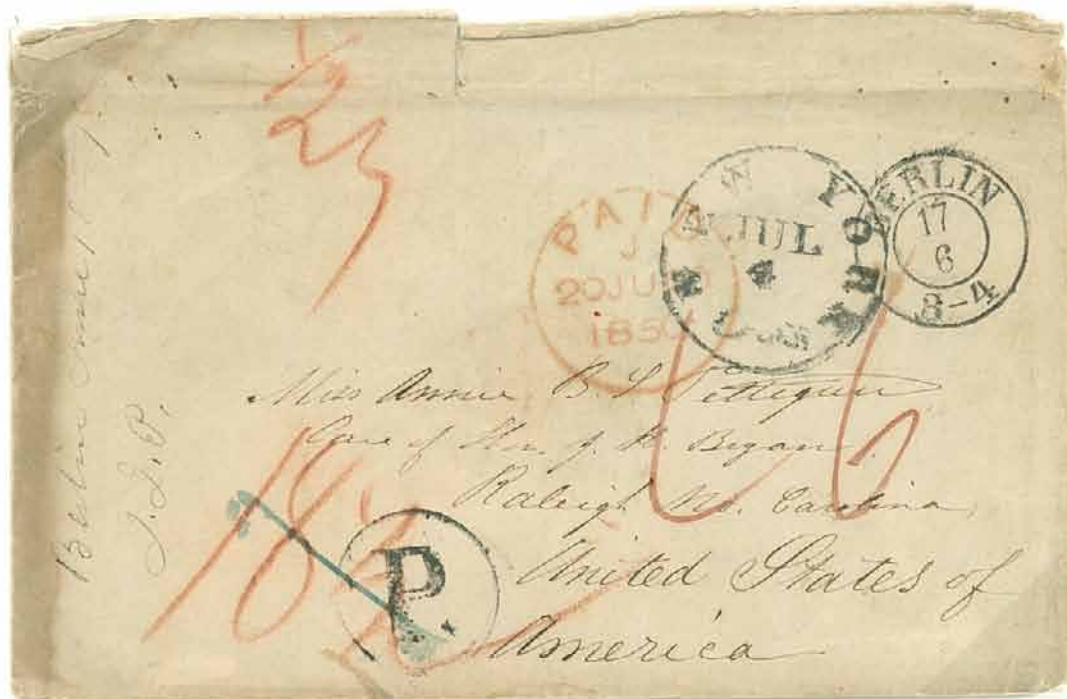 Berlin June
J. J. P.
PAID
J
20 JU
1850
NEW YORK
JUL
4
BERLIN
17
6
3-4
Miss Annie B. L. Pettigrew
Care of Hon. J. H. Bryan
Raleigh No. Carolina
United States of
America
P.